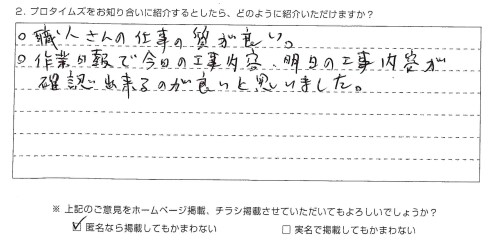 2. プロタイムズをお知り合いに紹介するとしたら、どのように紹介いただけますか？
○職人さんの仕事の質が良い。
○作業日報で今日の工事内容、明日の工事内容が
確認出来るのが良いと思いました。
※ 上記のご意見をホームページ掲載、チラシ掲載させていただいてもよろしいでしょうか？
☑ 匿名なら掲載してもかまわない □ 実名で掲載してもかまわない